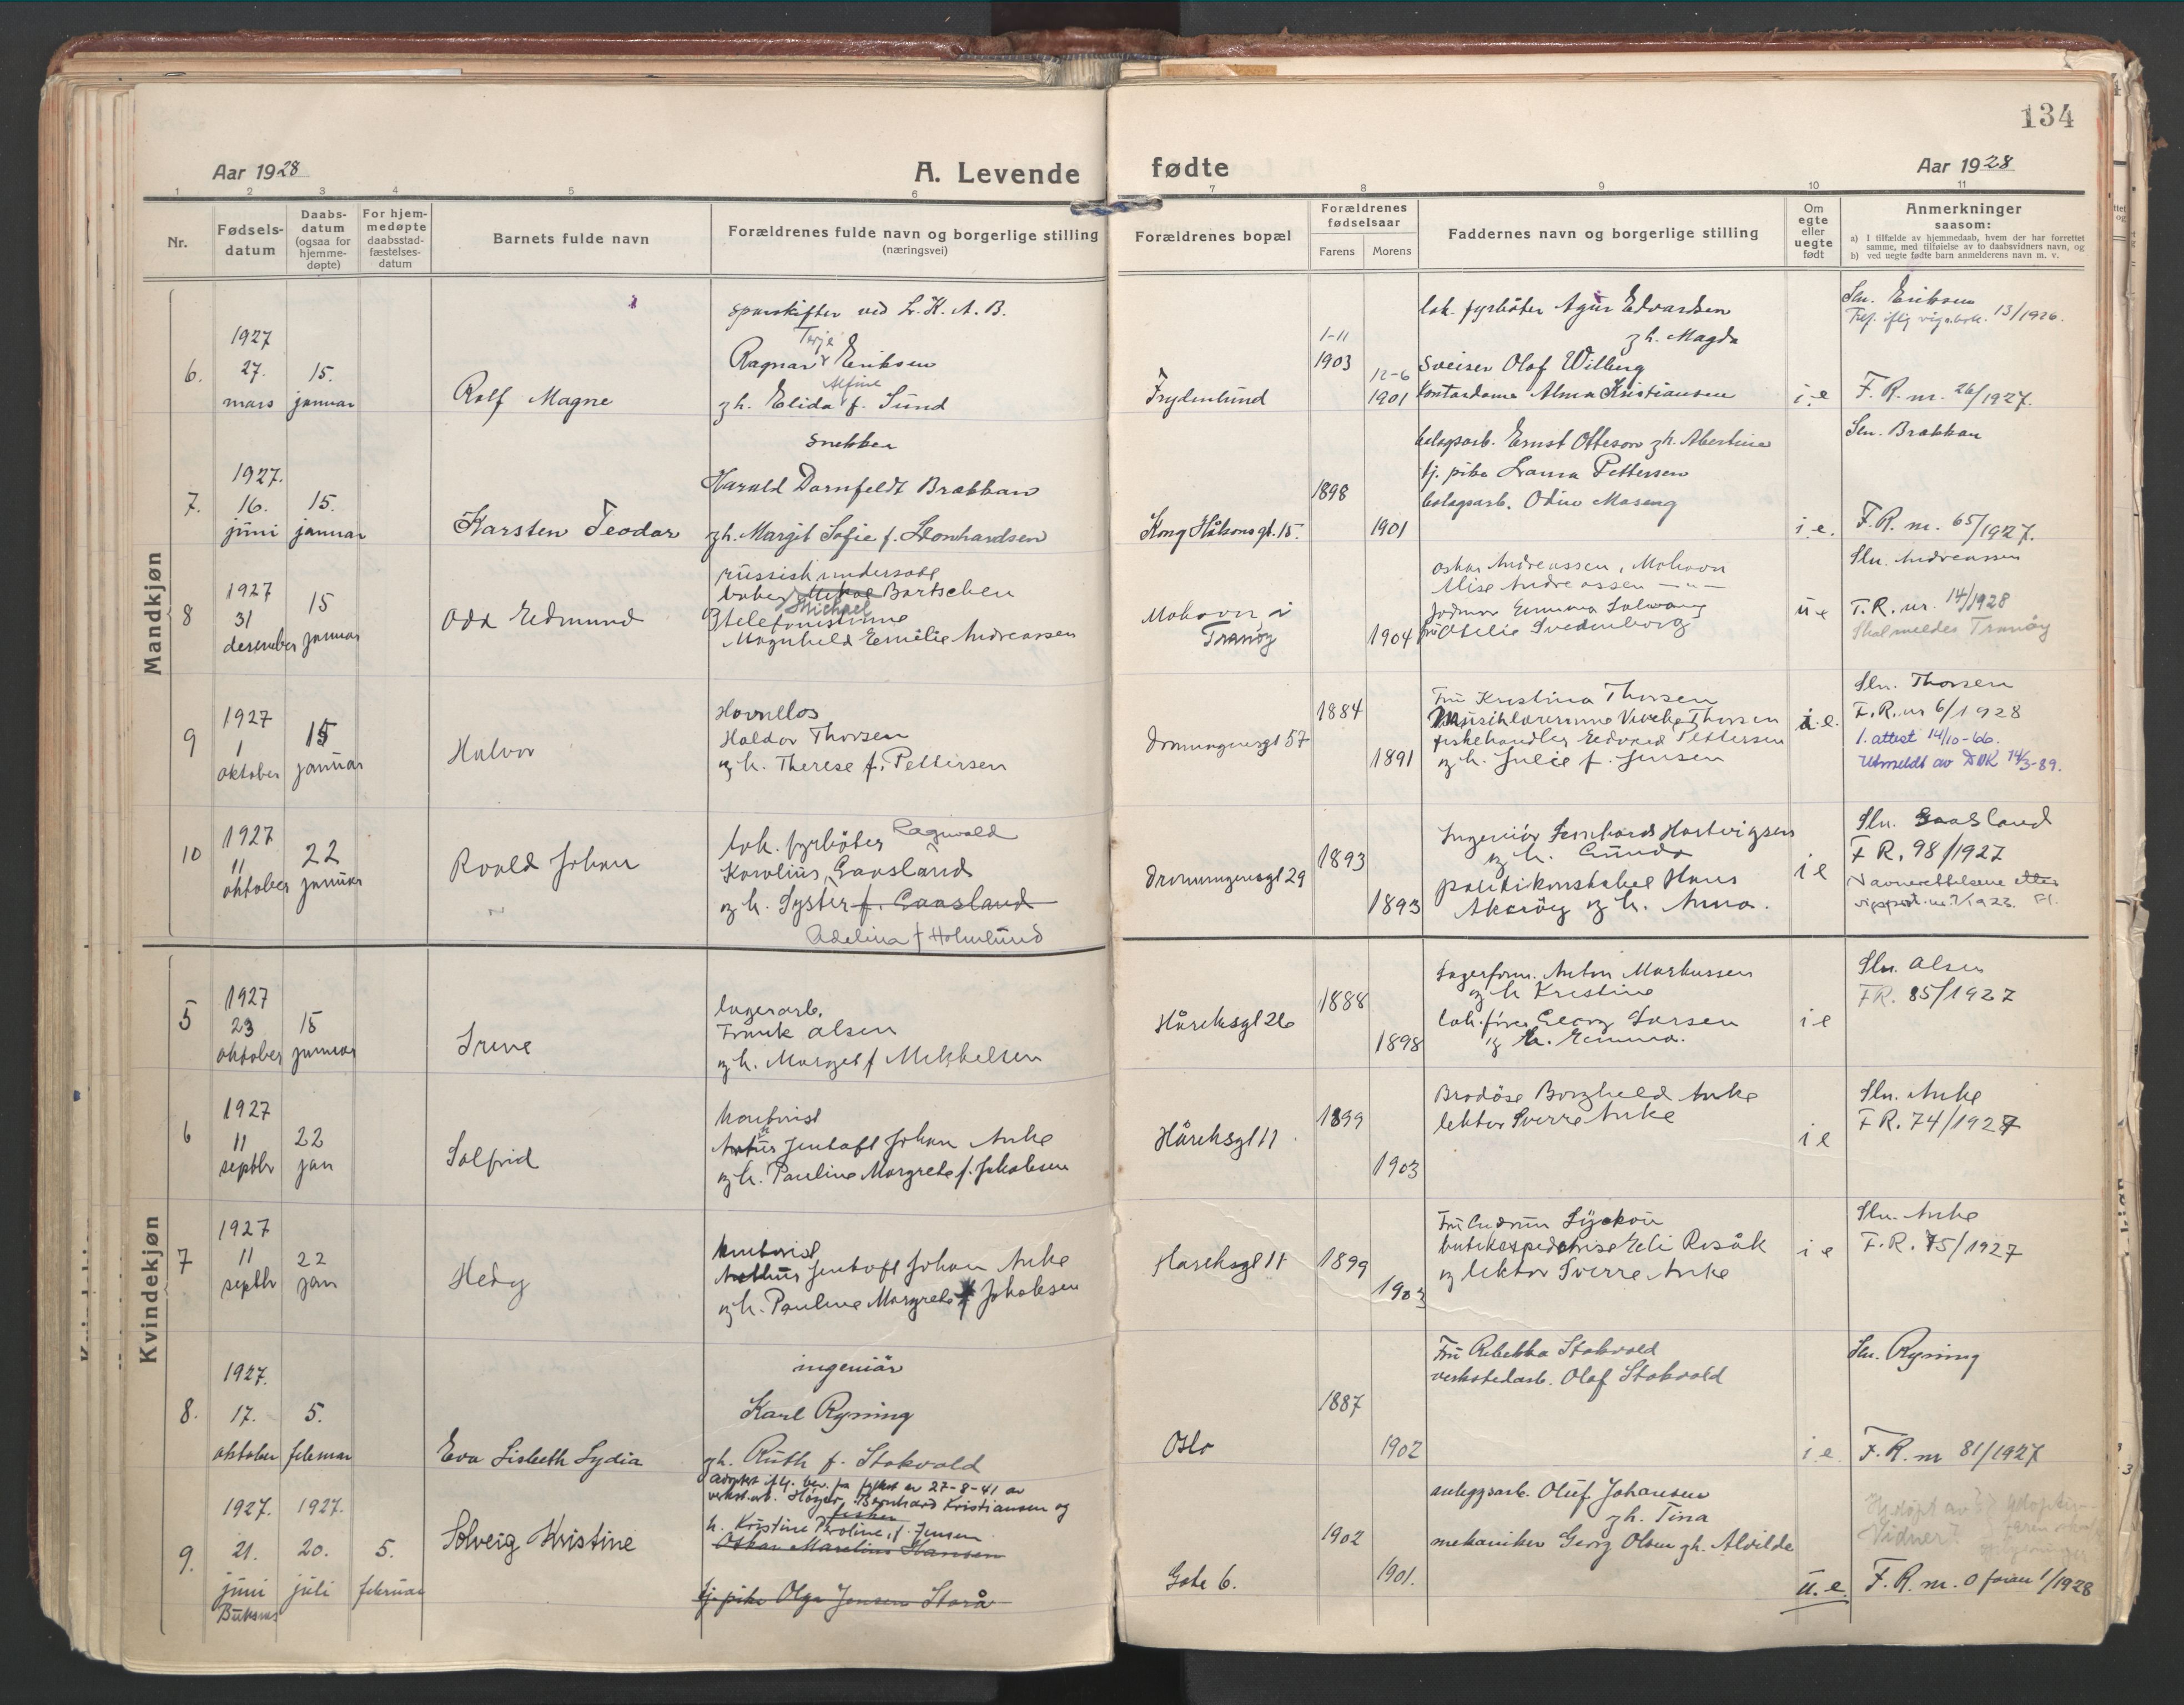 134
Aar 1928
A. Levende fødte
Aar 1928
1 2 3 4 5 6 7 8 9 10 11
Nr.
Fødsels-
datum
Daabs-
datum
(ogsaa for
hjemme-
døpte)
For hjem-
medøpte
daabsstad-
fæstelses-
datum
Barnets fulde navn
Forældrenes fulde navn og borgerlige stilling
(næringsvei)
Forældrenes bopæl
Forældrenes
fødselsaar
Farens Morens
Faddernes navn og borgerlige stilling
Om
egte
eller
uegte
født
Anmerkninger
saasom:
a) I tilfælde av hjemmedaab, hvem der har forrettet
samme, med tilføielse av to daabsvidners navn, og
b) ved uegte fødte barn anmelderens navn m. v.
Mandkjøn
6.
1927
27.
mars
15.
januar
Rolf Magne
sporskifter ved L.K.A.B.
Terje
Ragnar Eriksen
Alfine
og h. Elida f. Sund
Frydenlund
1-11
1903
12-6
1901
lok. fyrbøter Edvardsen
og h. Magda
Sveiser Olaf Wilberg
Kontordame Alma Kristiansen
i.e
Sln. Eriksen
13/1926.
F. R. nr. 26/1927.
7.
1927.
16.
juni
15.
januar
Karsten Teodor
snekker
Harald Dornfeldt Brakkan
og h. Margit Sofie f. Leonhardsen
Kong Håkons gt. 15.
1898
1901
bolagsarb. Ernst Otteson og h. Albertine
tj. pike Laura Pettersen
bolagsarb. Odin Maseng
i.e.
Sln. Brakkan
F. R. nr. 65/1927.
8
1927
31
desember
15
januar
Odd Edmund
russisk undersåt
Bartschen
Michael
telefonistinne
Magnhild Emilie Andreassen
Mohavn i
Tranøy
1904
Oskar Andreassen, Mohavn
Alise Andreassen — " —
Jodmor Emma Solvang
fru Otelie Svedenborg
u e
Sln. Andreassen
F.R. nr. 14/1928
Skal meldes Tranøy
9
1927
1
oktober
15
januar
Halvor
Havnelos
Haldor Thorsen
og h. Therese f. Pettersen
Dronningensgt 57
1884
1891
Fru Kristina Thorsen
Musiklærerinne Thorsen
fiskehandler Edvard Pettersen
og h. Julie f. Jensen
i.e.
Sln. Thorsen
F.R. nr 6/1928
1. attest 14/10-66.
Utmeldt av DNK 14/3-89.
10
1927
11
oktober
22
januar
Roald Johan
lok. fyrbøter Ragnvald
Karolius Gaasland
og h. Syster f. Gaasland
Adelina f Holmlund
Dronningensgt 29
1893
1893
Ingeniør Hartvigsen
og h. Gunda
politikonstabel Hans
Akerøy og h. Anna.
i e
Sln. Gaasland
F R. 98/1927
Navnerettelsene etter
Kvindekjøn
5
1927
23
oktober
15
januar
Irene
lagerarb.
Frank Olsen
og h. Marget f Mikkelsen
Håreksgt 26
1888
1898
Lagerform. Anton Markussen
og h Kristine
lok. fører Georg Larsen
og h. Emma.
i e
Sln. Olsen
FR. 85/1927
6
1927
11
septbr
22
jan
Solfrid
kontorist
Jentoft Johan Anke
og h. Pauline Margrete f. Jakobsen
Håreksgt 11
1899
1903
Borghild Anke
lektor Sverre Anke
i e
Sln. Anke
F R. 74/1927
7
1927
11
septbr
22
jan
Hedy
kontorist
Arthur Jentoft Johan Anke
og h. Pauline Margrete f Jakobsen
Hareksgt 11
1899
1903
Fru Gudrun
Eli Rosåk
og lektor Sverre Anke
i e
Sln. Anke
F.R. 75/1927
8.
1927.
17.
oktober
5.
februar
Eva Lisbeth Lydia
ingeniør
Karl Ryning
og h. Ruth f. Stokvold
Oslo
1887
1902
Fru Rebekka Stokvold
verkstedarb. Olaf Stokvold
i e.
Sln. Ryning
F. R. nr 81/1927
9.
1927.
21.
juni
Buksnes
1927.
20.
juli
5.
februar
Solveig Kristine
adoptert ifg. bev. fra fylket av 27-8-41 av
verkst.arb. Bernhard Kristiansen og
h. Kristine Pauline, f. Jensen
fisker
Oskar Marelius Hansen
tj. pike Olga Jensen Storå
Gate 6.
1902
1901.
anleggsarb. Oluf Johansen
og h. Tina
mekaniker Georg Olsen og h. Alvilde
u. e.
Hjedøpt av
Vidner:
F. R. nr. 0 foran 1/1928